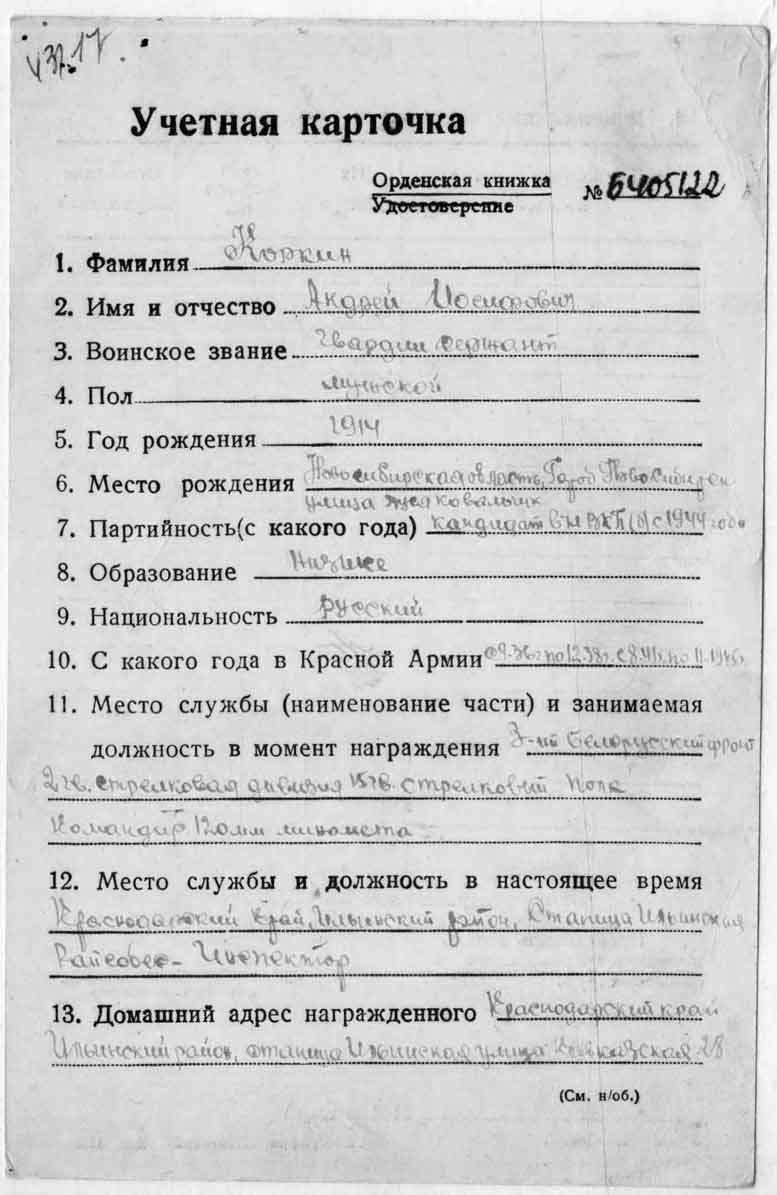 Учетная карточка
Орденская книжка
Удостоверение
№ Б 405122
1. Фамилия Коркин
2. Имя и отчество Андрей Иосифович
3. Воинское звание Гвардии сержант
4. Пол мужской
5. Год рождения 1914
6. Место рождения Новосибирская область, Город Новосибирск
улица
7. Партийность(с какого года) кандидат в чл ВКП(б) с 1944 года
8. Образование низшее
9. Национальность русский
10. С какого года в Красной Армии с 9.36г по 12.38г. с 8.41г. по 11.1945г
11. Место службы (наименование части) и занимаемая
должность в момент награждения 3-ий белорусский фронт
2 гв. стрелковая дивизия 15 гв. стрелковый полк
Командир 120 мм миномета
12. Место службы и должность в настоящее время
Краснодарский край, Ильинский район, Станица Ильинская
Райсобес - Инспектор
13. Домашний адрес награжденного Краснодарский край
Ильинский район, станица Ильинская улица Кавказская 28
(См. н/об.)